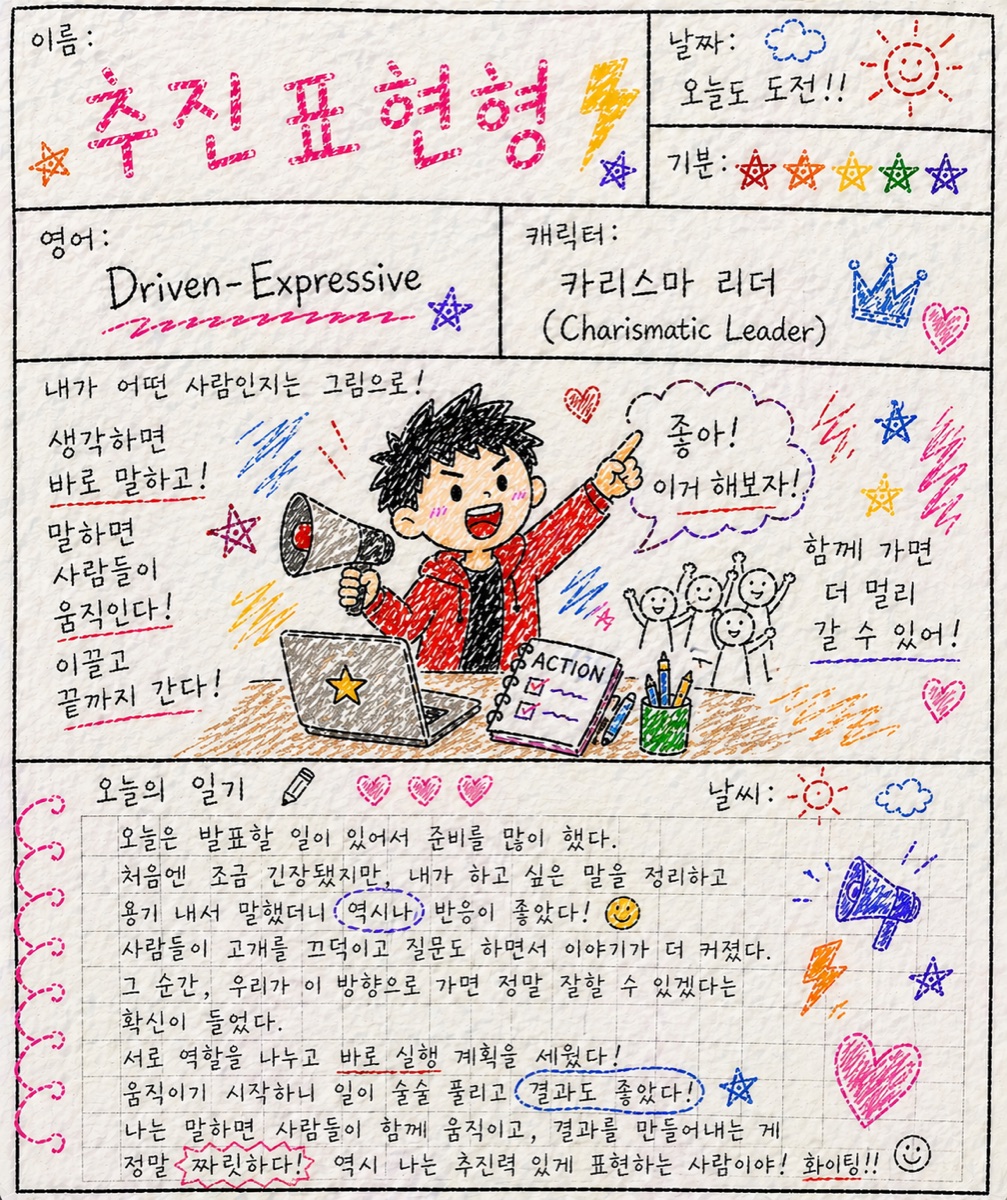 이름:
추진 표현형
날짜:
오늘도 도전!!
기분:
영어:
Driven-Expressive
캐릭터:
카리스마 리더
(Charismatic Leader)
내가 어떤 사람인지는 그림으로!
생각하면
바로 말하고!
말하면
사람들이
움직인다!
이끌고
끝까지 간다!
좋아!
이거 해보자!
함께 가면
더 멀리
갈 수 있어!
ACTION
오늘의 일기
날씨:
오늘은 발표할 일이 있어서 준비를 많이 했다.
처음엔 조금 긴장됐지만, 내가 하고 싶은 말을 정리하고
용기 내서 말했더니 역시나 반응이 좋았다!
사람들이 고개를 끄덕이고 질문도 하면서 이야기가 더 커졌다.
그 순간, 우리가 이 방향으로 가면 정말 잘할 수 있겠다는
확신이 들었다.
서로 역할을 나누고 바로 실행 계획을 세웠다!
움직이기 시작하니 일이 술술 풀리고 결과도 좋았다!
나는 말하면 사람들이 함께 움직이고, 결과를 만들어내는 게
정말 짜릿하다! 역시 나는 추진력 있게 표현하는 사람이야! 화이팅!!